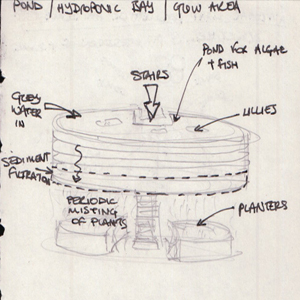 POND / HYDROPONIC BAY / GROW AREA
POND FOR ALGAE
+ FISH
STAIRS
GREY
WATER
IN
LILLIES
SEDIMENT
FILTRATION
PERIODIC
MISTING
OF PLANTS
PLANTERS